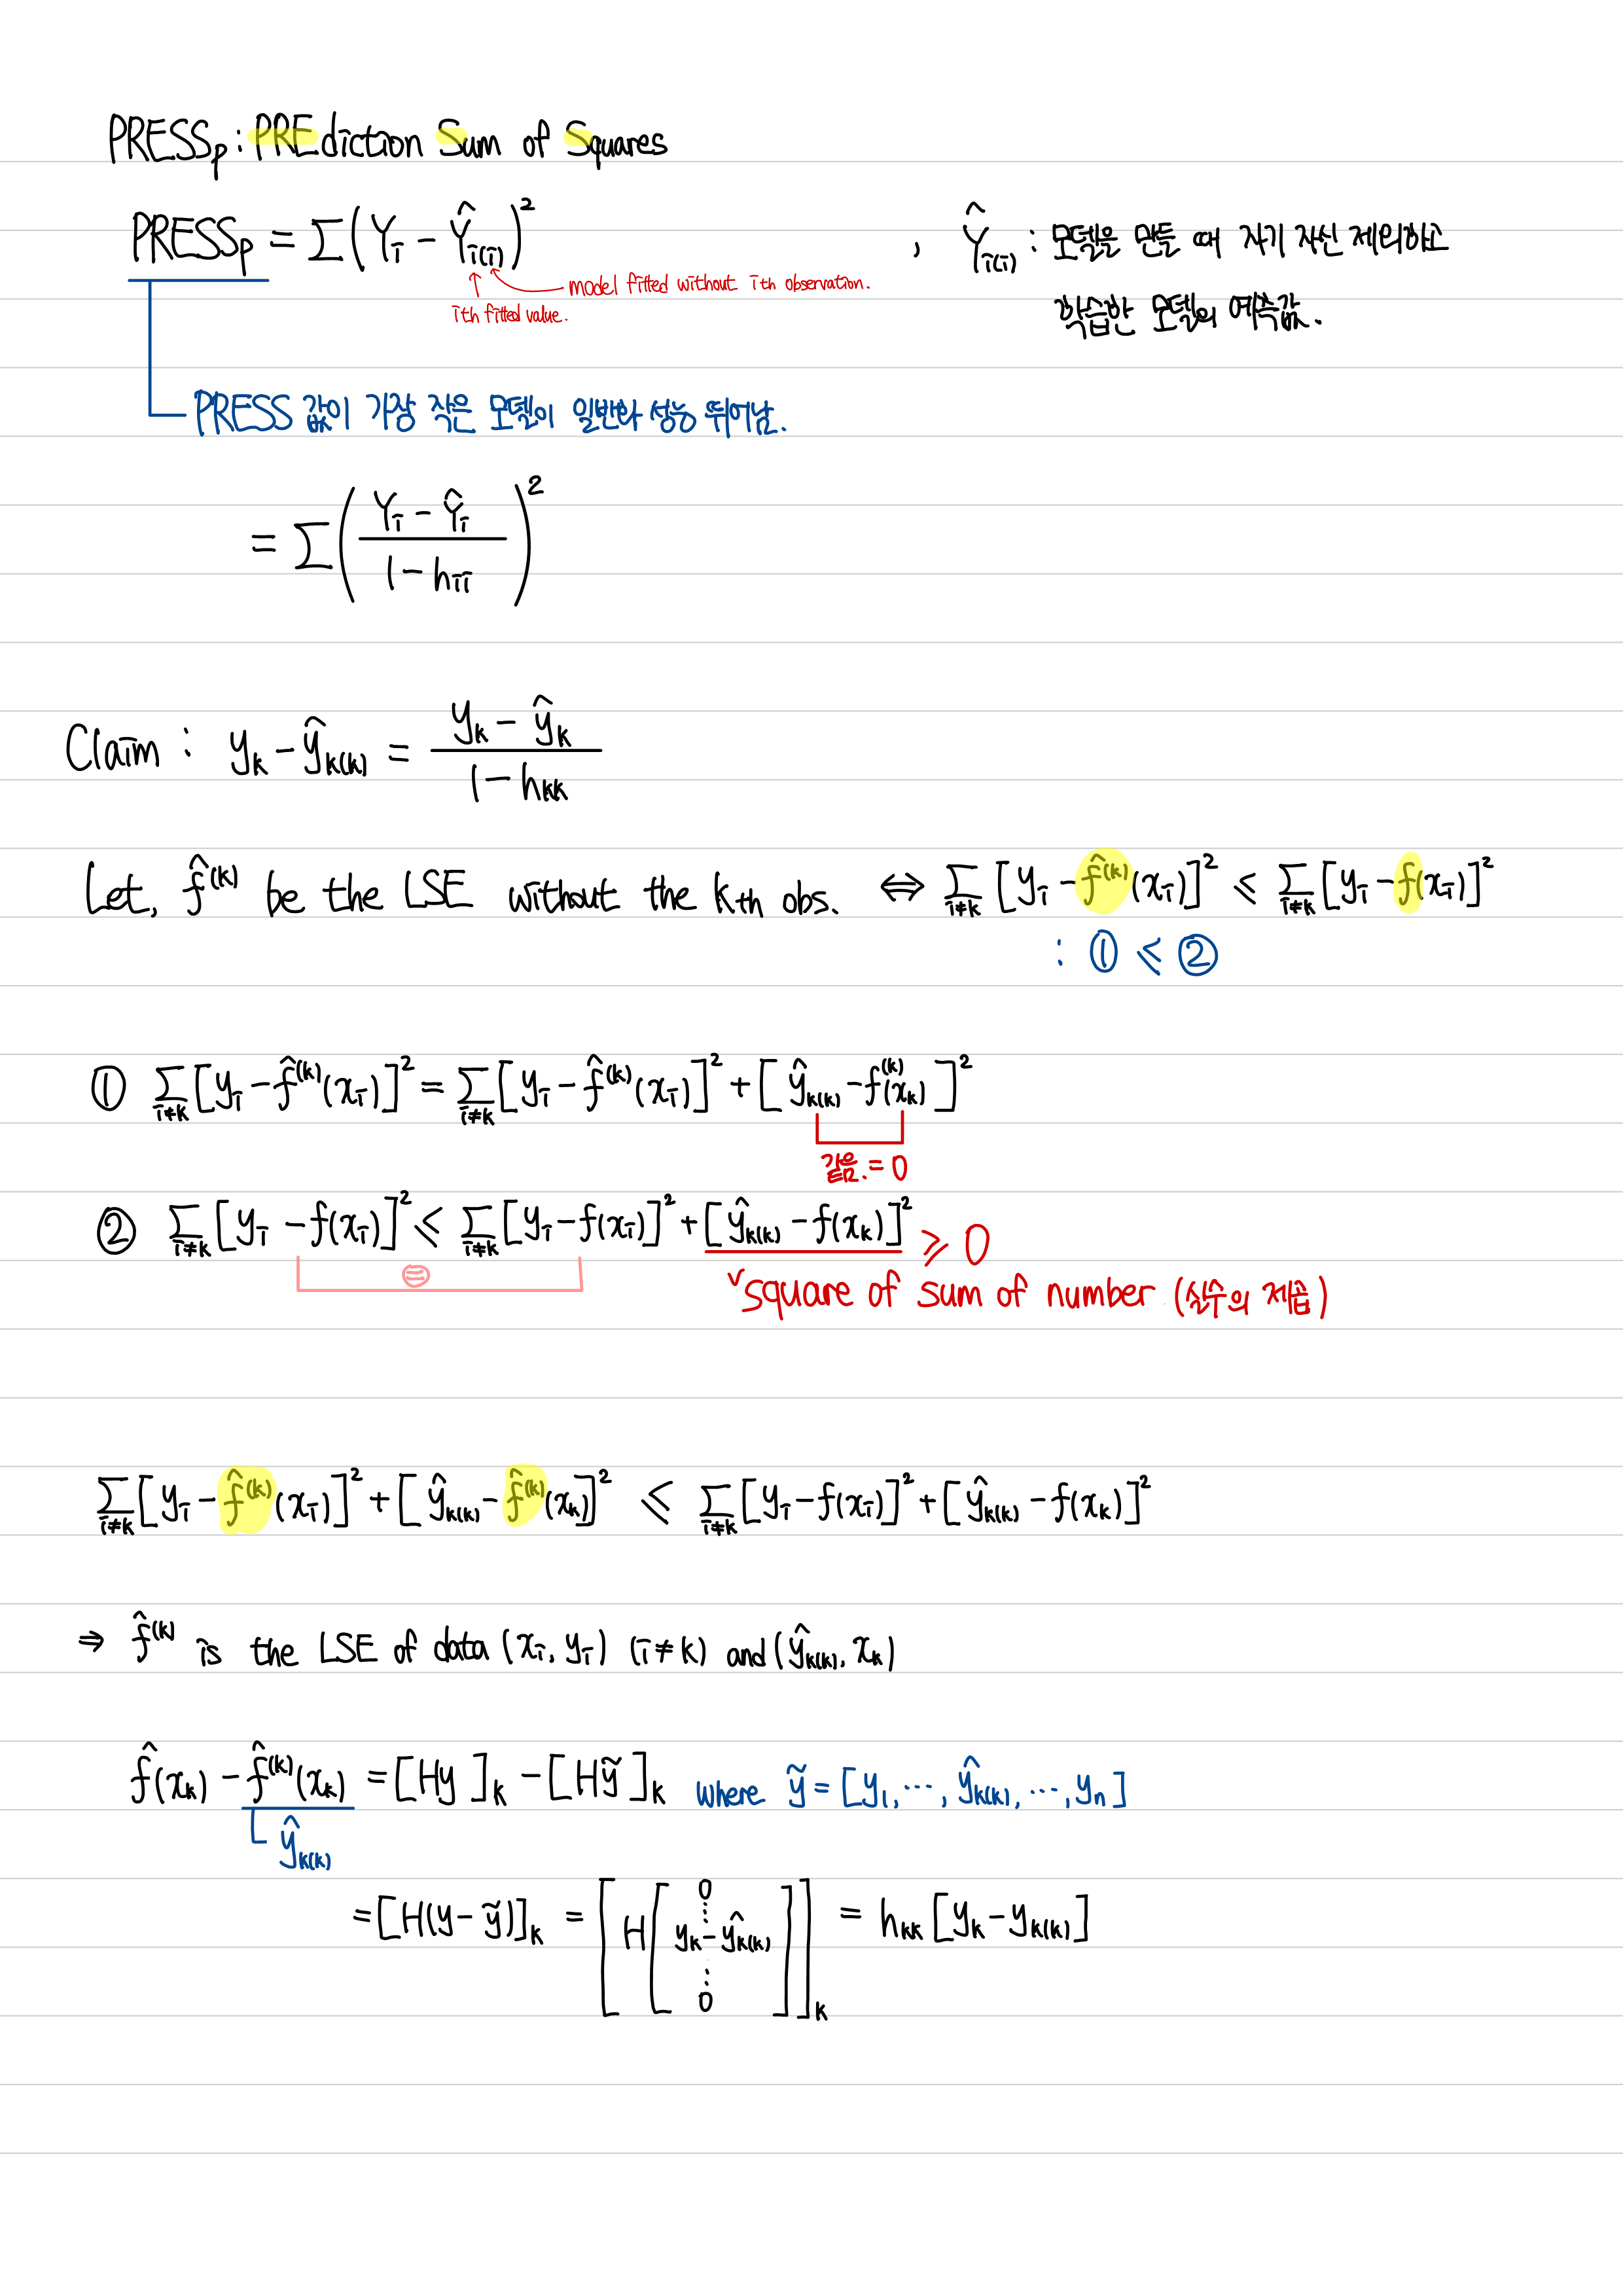 PRESSₚ : PREdiction Sum of Squares
PRESSₚ = Σ(Yᵢ − Ŷᵢ₍ᵢ₎)² , Ŷᵢ₍ᵢ₎ : 모델을 만들 때 자기 자신 제외하고
model fitted without ith observation.
ith fitted value.
학습한 모델의 예측값.
PRESS 값이 가장 작은 모델이 일반화 성능 뛰어남.
= Σ((Yᵢ − Ŷᵢ)/(1 − hᵢᵢ))²
Claim : yₖ − ŷₖ₍ₖ₎ = (yₖ − ŷₖ)/(1 − hₖₖ)
Let, f̂⁽ᵏ⁾ be the LSE without the kth obs. ⇔ Σ_{i≠k} [yᵢ − f̂⁽ᵏ⁾(xᵢ)]² ≤ Σ_{i≠k} [yᵢ − f(xᵢ)]²
: ① ≤ ②
① Σ_{i≠k} [yᵢ − f̂⁽ᵏ⁾(xᵢ)]² = Σ_{i≠k} [yᵢ − f̂⁽ᵏ⁾(xᵢ)]² + [ŷₖ₍ₖ₎ − f⁽ᵏ⁾(xₖ)]²
같음. = 0
② Σ_{i≠k} [yᵢ − f(xᵢ)]² ≤ Σ_{i≠k} [yᵢ − f(xᵢ)]² + [ŷₖ₍ₖ₎ − f(xₖ)]² ≥ 0
=
square of sum of number (실수의 제곱)
Σ_{i≠k} [yᵢ − f̂⁽ᵏ⁾(xᵢ)]² + [ŷₖ₍ₖ₎ − f̂⁽ᵏ⁾(xₖ)]² ≤ Σ_{i≠k} [yᵢ − f(xᵢ)]² + [ŷₖ₍ₖ₎ − f(xₖ)]²
⇒ f̂⁽ᵏ⁾ is the LSE of data (xᵢ, yᵢ) (i ≠ k) and (ŷₖ₍ₖ₎, xₖ)
f̂(xₖ) − f̂⁽ᵏ⁾(xₖ) = [Hy]ₖ − [Hỹ]ₖ where ỹ = [y₁, ⋯, ŷₖ₍ₖ₎, ⋯, yₙ]
ŷₖ₍ₖ₎
= [H(y − ỹ)]ₖ = [H[0 ⋮ yₖ − ŷₖ₍ₖ₎ ⋮ 0]]ₖ = hₖₖ[yₖ − yₖ₍ₖ₎]